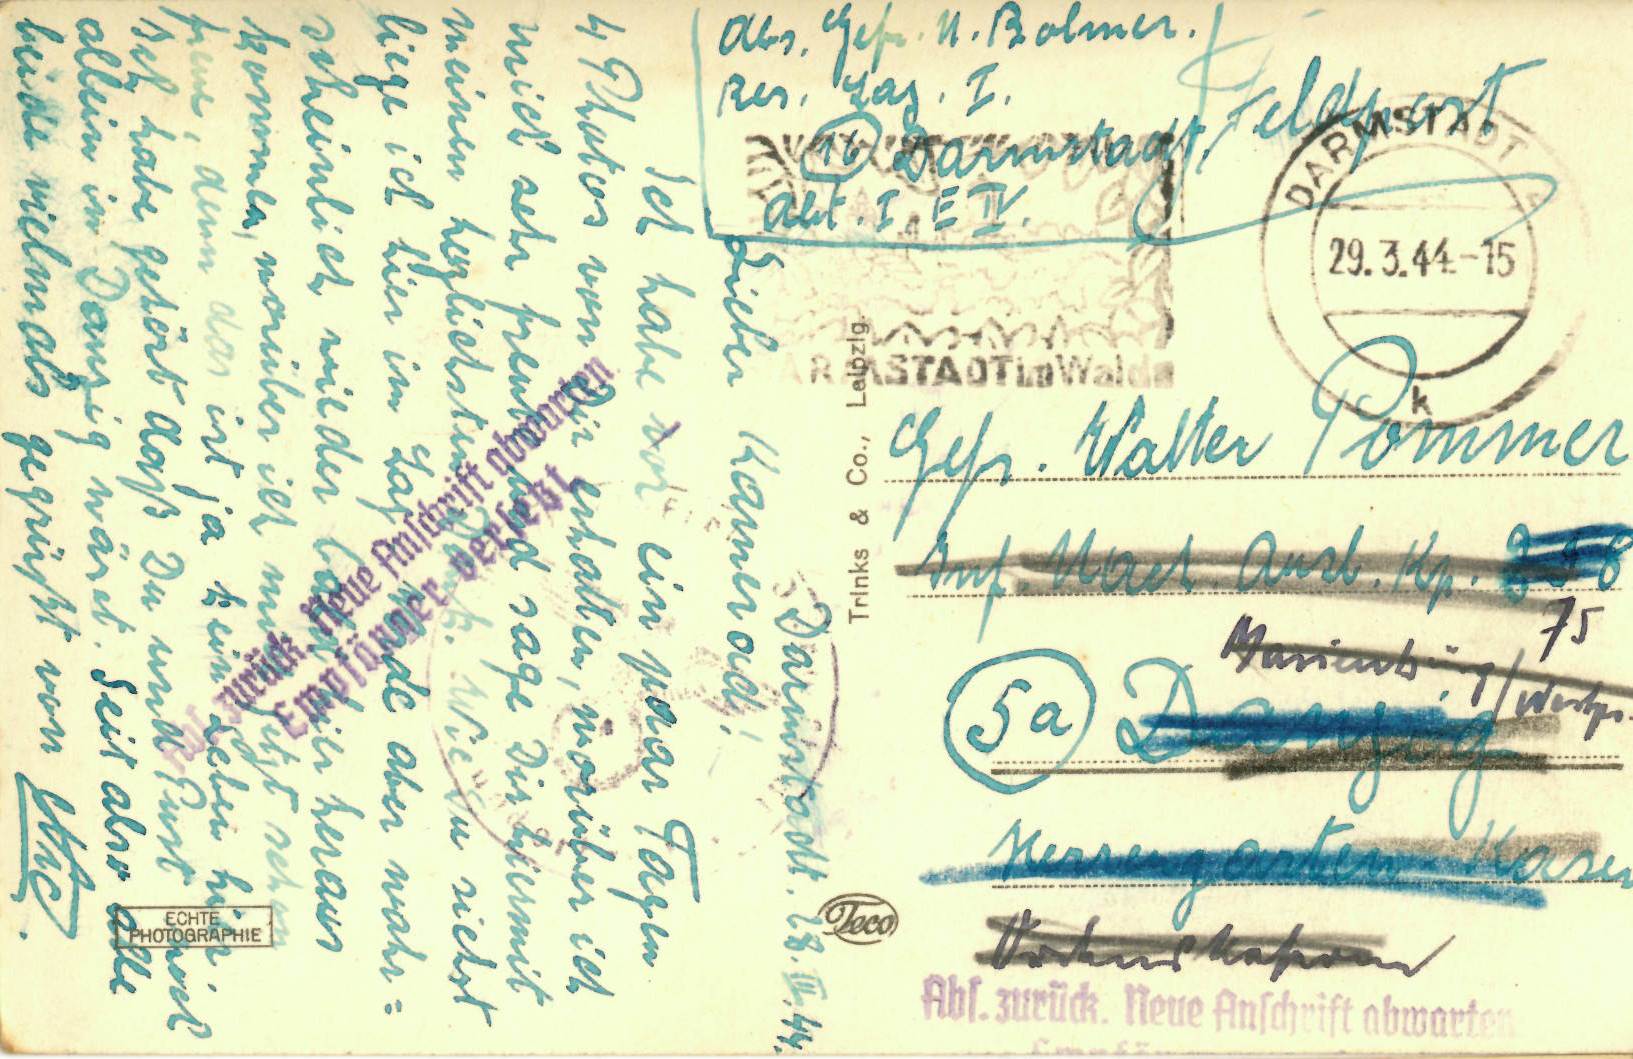 Abs. Gefr. N. Bolmer.
Res. Laz. I.
(16) Darmstadt.
Abt. I E IV.
Feldpost
DARMSTADT
29.3.44.-15
k
DARMSTADT im Walde
Gefr. Walter Pommer
Inf. Nach Ausb. Kp.
75
Marienburg/Westpr.
5a Danzig
Herrengarten Kaser
Abs. zurück. Neue Anschrift abwarten
Trinks & Co., Leipzig.
Teco
Darmstadt. 28.III.44.
Lieber Kamerad!
Ich habe vor ein paar Tagen
4 Photos von Dir erhalten, worüber ich
mich sehr freute und sage Dir hiermit
meinen herzlichsten Dank. Wie Du siehst
liege ich hier im Laz. werde aber wahr=
scheinlich wieder bald hier heraus
kommen, worüber ich mich jetzt schon
freue, denn das ist ja kein Leben hier.
Ich habe gehört daß Du und Purt noch
allein in Danzig wärst. Seit also alle
beide vielmals gegrüßt von
Abs. zurück. Neue Anschrift abwarten
Empfänger versetzt
ECHTE
PHOTOGRAPHIE